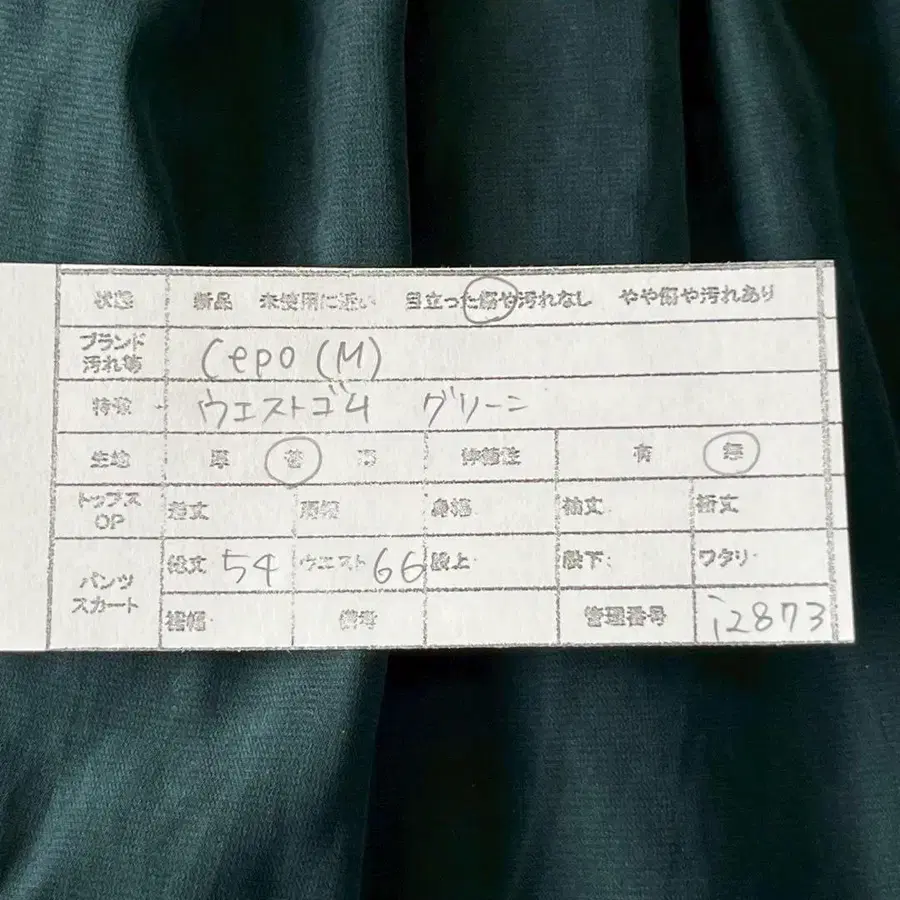 状態 新品 未使用に近い 目立った傷や汚れなし やや傷や汚れあり
ブランド
汚れ等 Cepo (M)
特徴 ウエストゴム グリーン
生地 厚 普 薄 伸縮性 有 無
トップス
OP 着丈 肩幅 身幅 袖丈 裄丈
パンツ
スカート 総丈 54 ウエスト 66 股上 股下: ワタリ
裾幅 備考 管理番号 i2873